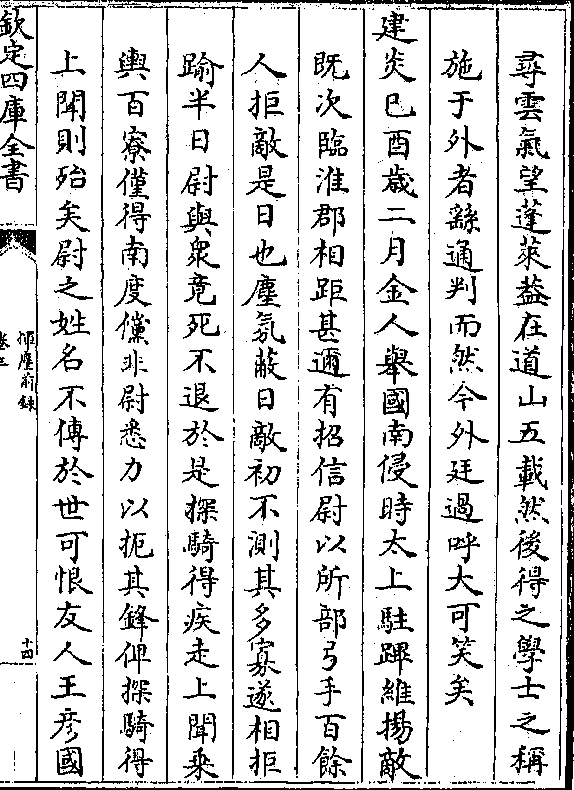 尋雲氣望蓬萊葢在道山五載然後得之學士之稱
施于外者繇通判而然今外廷過呼大可笑矣
建炎已酉歲二月金人舉國南侵時太上駐蹕維揚敵
既次臨淮郡相距甚邇有招信尉以所部弓手百餘
人拒敵是日也塵氛蔽日敵初不測其多寡遂相拒
踰半日尉與衆竟死不退於是探騎得疾走上聞乗
輿百寮僅得南度儻非尉悉力以扼其鋒俾探騎得
上聞則殆矣尉之姓名不傳於世可恨友人王彦國
欽定四庫全書
揮麈前錄
卷三
十四